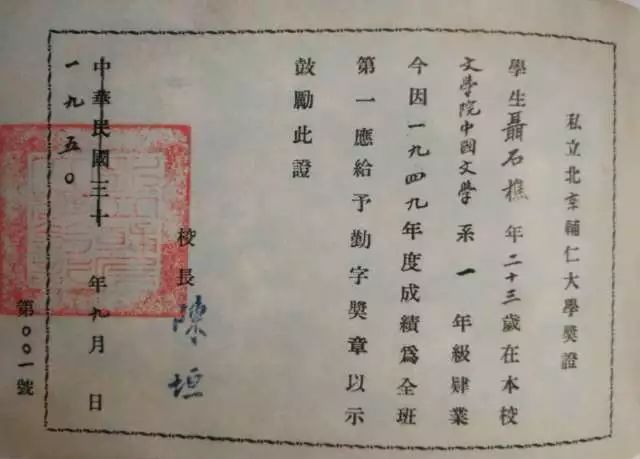 私立北京輔仁大學獎證
學生聶石樵年二十三歲在本校
文學院中國文學系一年級肄業
今因一九四九年度成績爲全班
第一應給予勤字獎章以示
鼓勵此證
校長陳垣
中華民國三十年九月日
一九五〇
第〇〇一號